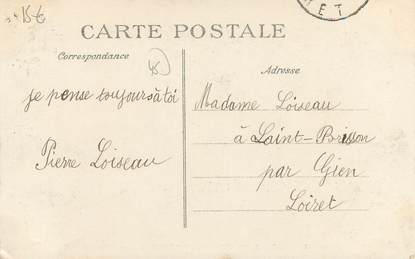 15€
CARTE POSTALE
Correspondance
Adresse
45
je pense toujours à toi
Pierre Loiseau
Madame Loiseau
à Saint-Brisson
par Gien
Loiret
ET